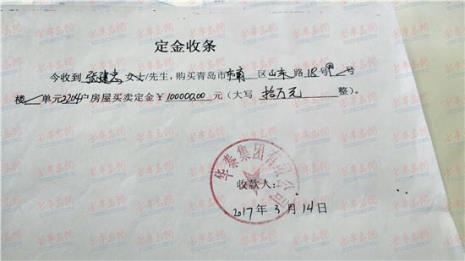 定金收条
今收到 张建忠 女士/先生，购买青岛市市南区山东路18号甲 号
楼 单元2204户房屋买卖定金￥100000.00元（大写 拾万元 整）。
华泰集团有限公司
收款人：
2017年3月14日